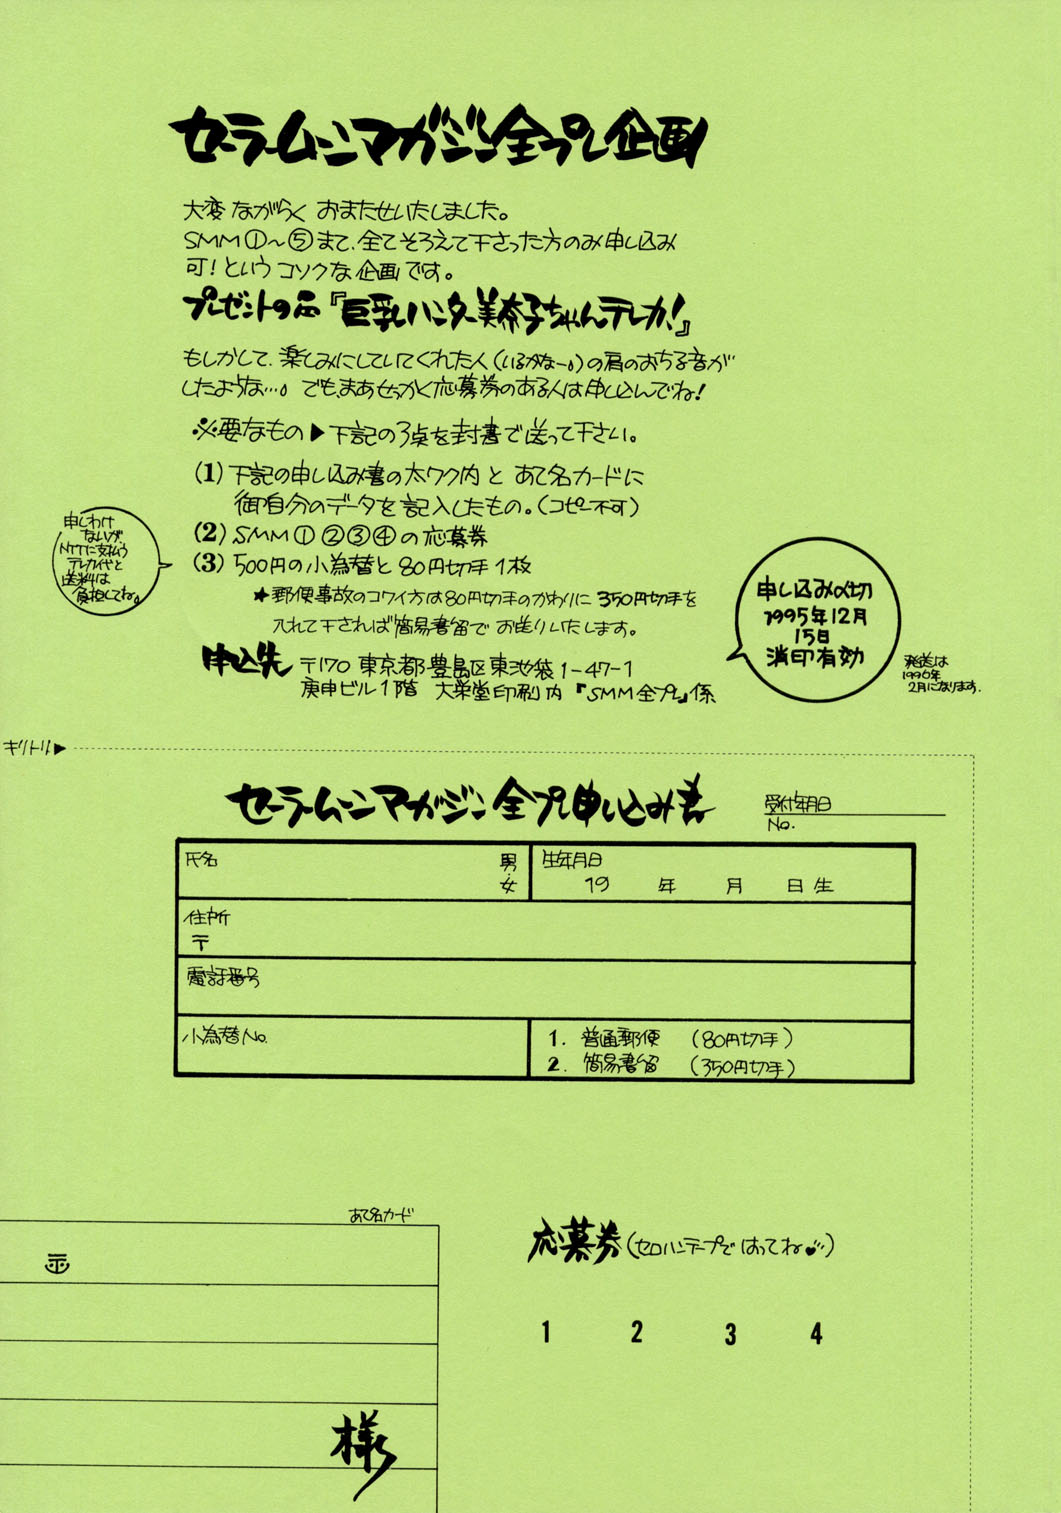 セーラームーンマガジン全プレ企画
大変ながらくおまたせいたしました。
SMM①〜⑤まで、全てそろえて下さった方のみ申し込み
可！というコソクな企画です。
プレゼントの品『巨乳ハンター美奈子ちゃんテレカ！』
もしかして、楽しみにしていてくれた人（いるかなー。）の肩のおちる音が
したような…。でも、まあせっかく応募券のある人は申し込んでね！
※必要なもの▶下記の3点を封書で送って下さい。
(1) 下記の申し込み書の太ワク内と あて名カードに
御自分のデータを記入したもの。（コピー不可）
(2) SMM①②③④の応募券
(3) 500円の小為替と80円切手1枚
★郵便事故のコワイ方は80円切手のかわりに350円切手を
入れて下されば簡易書留でお送りいたします。
申しわけ
ないが
NTTに支払う
テレカ代と
送料は
負担してね。
申し込み〆切
1995年12月
15日
消印有効
発送は
1996年
2月になります。
申込先 〒170 東京都豊島区東池袋1-47-1
庚申ビル1階 大栄堂印刷内『SMM全プレ』係
キリトリ▶
セーラームーンマガジン全プレ申し込み書
受付年月日
No.
氏名 男・女
生年月日
19 年 月 日生
住所
〒
電話番号
小為替No.
1. 普通郵便 （80円切手）
2. 簡易書留 （350円切手）
あて名カード
〒
様
応募券（セロハンテープではってね♥）
1 2 3 4